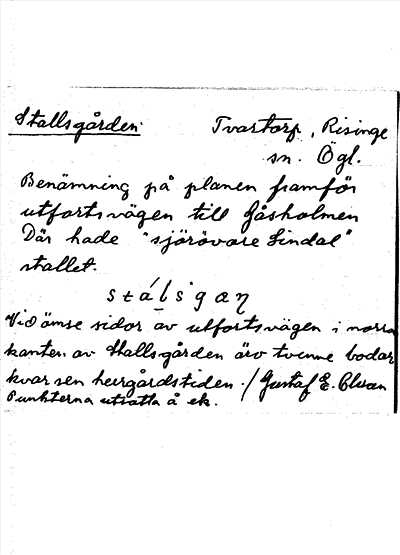 Stallsgården
Tvartorp, Risinge
sn. Ögl.
Benämning på planen framför
utfartsvägen till Gåsholmen
Där hade "sjörövare Lindal"
stallet.
stálsgaŋ
Vid ömse sidor av utfortsvägen i norra
kanten av Stallsgården äro tvenne bodar
kvar sen herrgårdstiden. / Gustaf E.
Punkterna utsatta å ek.